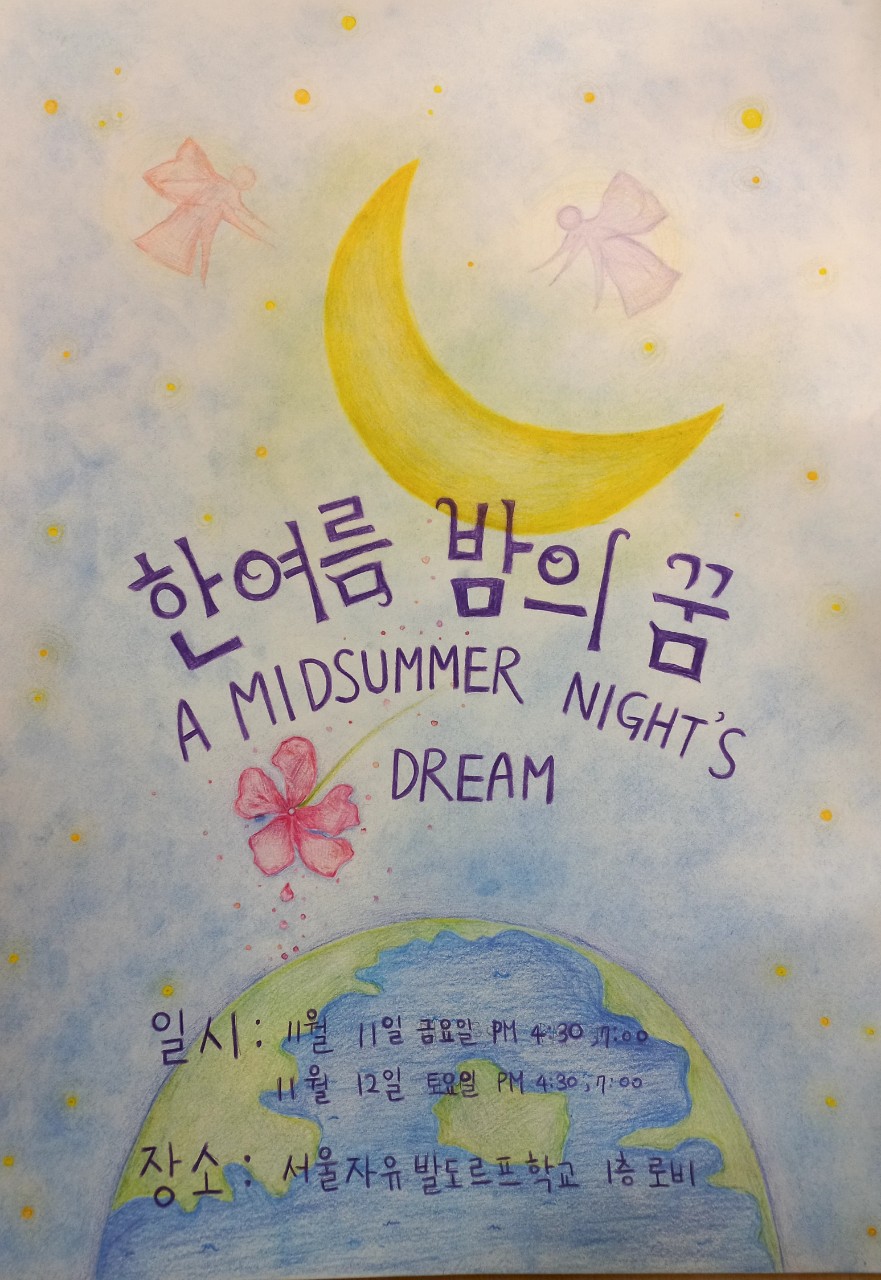 한여름 밤의 꿈
A MIDSUMMER NIGHT'S
DREAM
일시: 11월 11일 금요일 PM 4:30, 7:00
11월 12일 토요일 PM 4:30, 7:00
장소: 서울자유발도르프학교 1층 로비